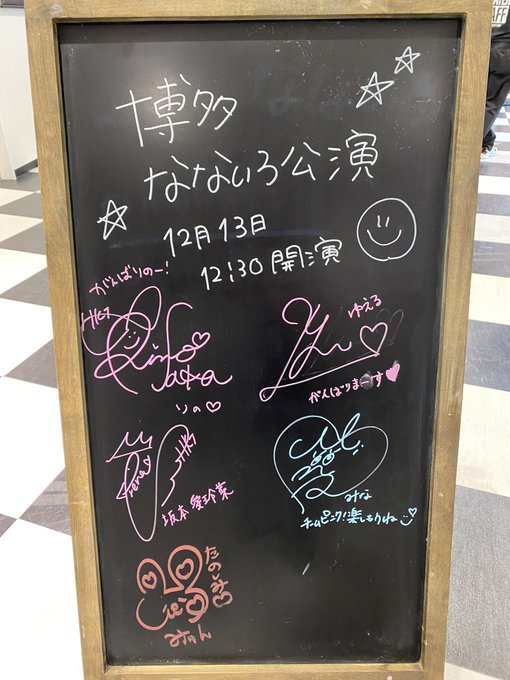 博多
なないろ公演
12月13日
12:30 開演
がんばりのー!
HKT
りの♡
ゆえる
がんばりまーす♥
HKT
坂本愛玲菜
みな
チームピンク!楽しもうね
たのしみ♡
みゅん